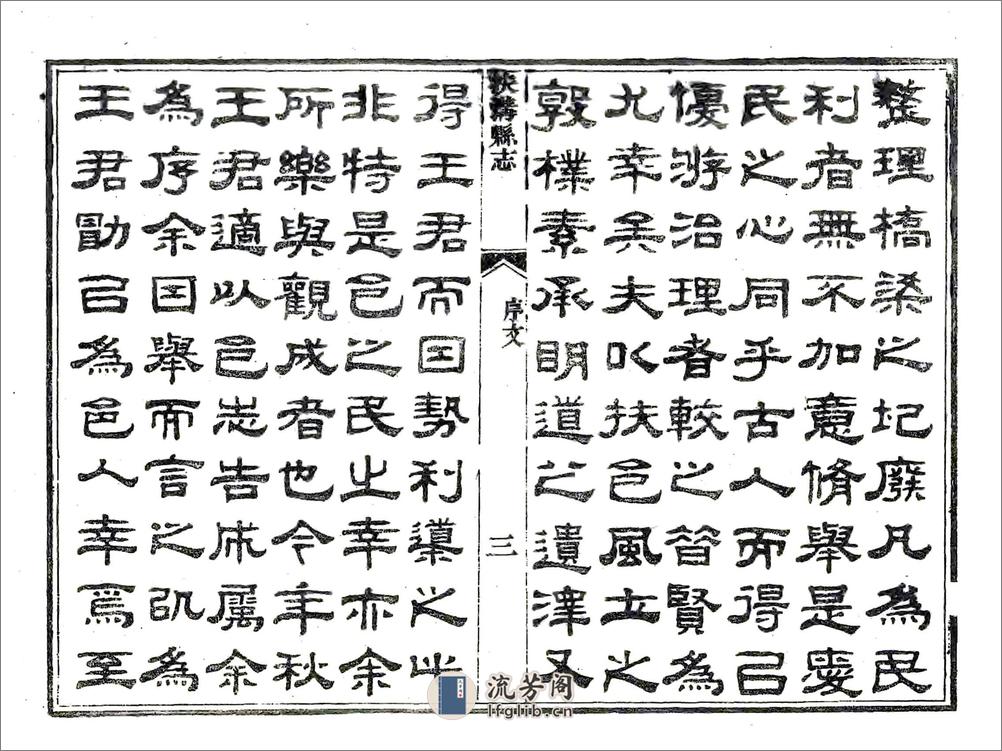 整理橋梁之圮廢凡為民
利者無不加意脩舉是愛
民之心同乎古人而得已
優游治理者較之昔賢為
尤幸矣夫以扶邑風土之
敦樸素承明道之遺澤又
扶溝縣志
序文
三
得王君而因勢利導之此
非特是邑之民之幸亦余
所樂與觀成者也今年秋
王君適以邑志告成屬余
為序余因舉而言之既為
王君勖已為邑人幸焉至
流芳阁
lfglib.cn